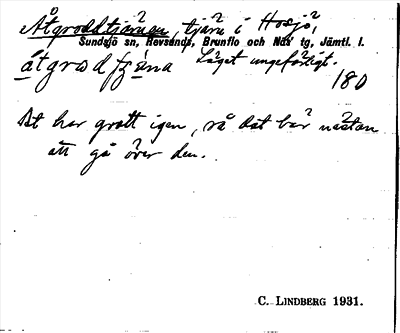 Åtgroddtjärnen, tjärn i Hosjö,
Sundsjö sn, Revsunds, Brunflo och Näs tg, Jämtl. l.
Läget ungefärligt.
180
Det har grott igen, så det bär nästan
att gå över den.
C. LINDBERG 1931.